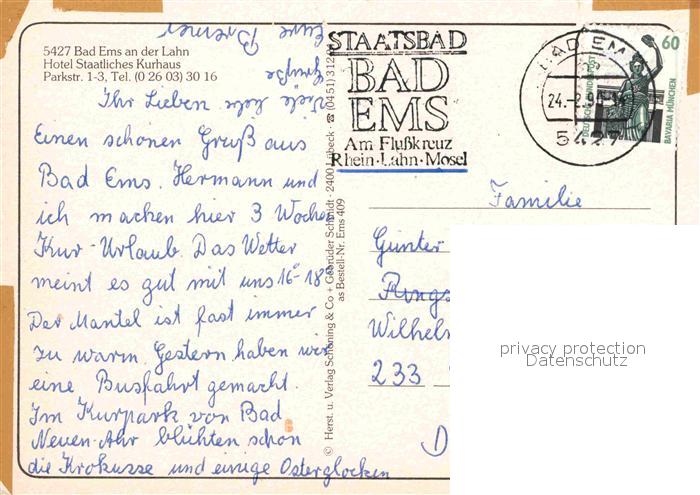 5427 Bad Ems an der Lahn
Hotel Staatliches Kurhaus
Parkstr. 1-3, Tel. (0 26 03) 30 16
Ihr Lieben
Einen schönen Gruß aus
Bad Ems. Hermann und
ich machen hier 3 Wochen
Kur-Urlaub. Das Wetter
meint es gut mit uns 16°-18°
Der Mantel ist fast immer
zu warm. Gestern haben wir
eine Busfahrt gemacht.
Im Kurpark von Bad
Neuen-Ahr blühten schon
die Krokusse und einige Osterglocken
Viele
Grüße
Eure
© Herst. u. Verlag Schöning & Co + Gebrüder Schmidt · 2400 Lübeck · ☎ (04 51) 312
as Bestell-Nr. Ems 409
STAATSBAD
BAD
EMS
Am Flußkreuz
Rhein·Lahn·Mosel
BAD EMS
24.-2.90
5427
60
DEUTSCHE BUNDESPOST
BAVARIA MÜNCHEN
Familie
Günter
Rings
Wilhelm
233
D
privacy protection
Datenschutz